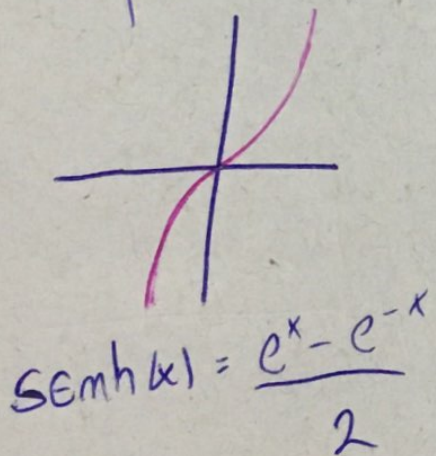 senh(x) = (e^x - e^-x) / 2